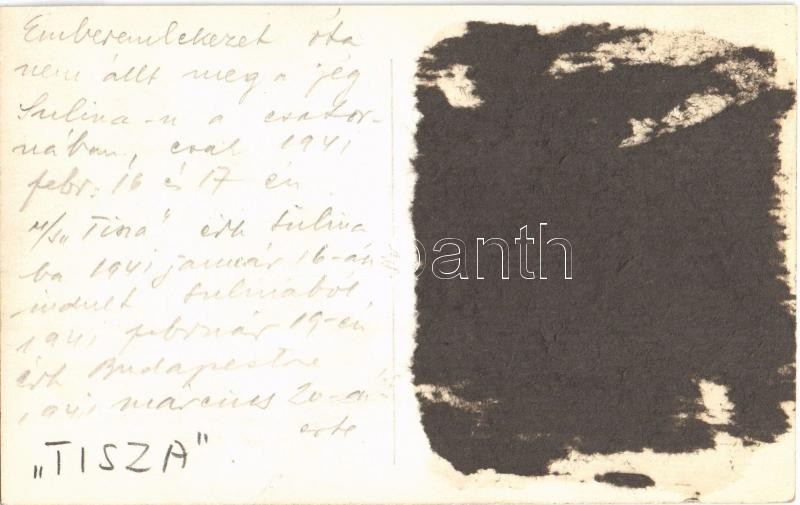 Emberemlékezet óta
nem állt meg a jég
Sulina-n a csator-
nában, csak 1941
febr. 16 és 17 én
m/s „Tisza" érk Sulina
ba 1941 január 16-án
indult Sulinából
1941 február 19-én
érk Budapestre
1941 március 20-án
este.
„TISZA"
panth